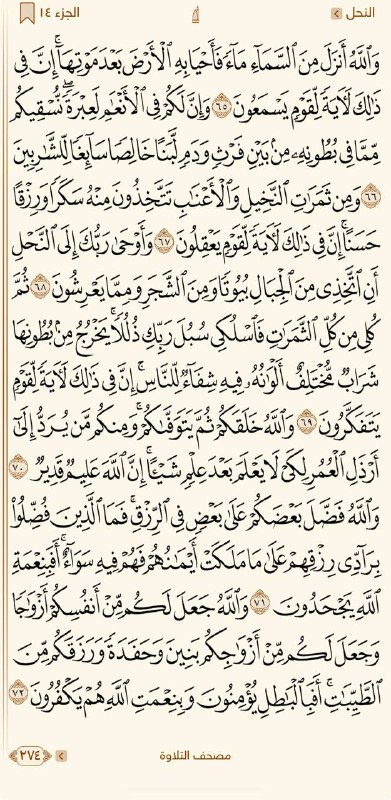 النحل الجزء ١٤
وَٱللَّهُ أَنزَلَ مِنَ ٱلسَّمَآءِ مَآءً فَأَحْيَا بِهِ ٱلْأَرْضَ بَعْدَ مَوْتِهَآۚ إِنَّ فِى
ذَٰلِكَ لَـَٔايَةً لِّقَوْمٍ يَسْمَعُونَ ٦٥ وَإِنَّ لَكُمْ فِى ٱلْأَنْعَٰمِ لَعِبْرَةًۖ نُّسْقِيكُم
مِّمَّا فِى بُطُونِهِۦ مِنۢ بَيْنِ فَرْثٍ وَدَمٍ لَّبَنًا خَالِصًا سَآئِغًا لِّلشَّٰرِبِينَ
٦٦ وَمِن ثَمَرَٰتِ ٱلنَّخِيلِ وَٱلْأَعْنَٰبِ تَتَّخِذُونَ مِنْهُ سَكَرًا وَرِزْقًا
حَسَنًاۗ إِنَّ فِى ذَٰلِكَ لَـَٔايَةً لِّقَوْمٍ يَعْقِلُونَ ٦٧ وَأَوْحَىٰ رَبُّكَ إِلَى ٱلنَّحْلِ
أَنِ ٱتَّخِذِى مِنَ ٱلْجِبَالِ بُيُوتًا وَمِنَ ٱلشَّجَرِ وَمِمَّا يَعْرِشُونَ ٦٨ ثُمَّ
كُلِى مِن كُلِّ ٱلثَّمَرَٰتِ فَٱسْلُكِى سُبُلَ رَبِّكِ ذُلُلًاۚ يَخْرُجُ مِنۢ بُطُونِهَا
شَرَابٌ مُّخْتَلِفٌ أَلْوَٰنُهُۥ فِيهِ شِفَآءٌ لِّلنَّاسِۚ إِنَّ فِى ذَٰلِكَ لَـَٔايَةً لِّقَوْمٍ
يَتَفَكَّرُونَ ٦٩ وَٱللَّهُ خَلَقَكُمْ ثُمَّ يَتَوَفَّىٰكُمْۚ وَمِنكُم مَّن يُرَدُّ إِلَىٰٓ
أَرْذَلِ ٱلْعُمُرِ لِكَىْ لَا يَعْلَمَ بَعْدَ عِلْمٍ شَيْـًٔاۚ إِنَّ ٱللَّهَ عَلِيمٌ قَدِيرٌ ٧٠
وَٱللَّهُ فَضَّلَ بَعْضَكُمْ عَلَىٰ بَعْضٍ فِى ٱلرِّزْقِۚ فَمَا ٱلَّذِينَ فُضِّلُوا۟
بِرَآدِّى رِزْقِهِمْ عَلَىٰ مَا مَلَكَتْ أَيْمَٰنُهُمْ فَهُمْ فِيهِ سَوَآءٌۚ أَفَبِنِعْمَةِ
ٱللَّهِ يَجْحَدُونَ ٧١ وَٱللَّهُ جَعَلَ لَكُم مِّنْ أَنفُسِكُمْ أَزْوَٰجًا
وَجَعَلَ لَكُم مِّنْ أَزْوَٰجِكُم بَنِينَ وَحَفَدَةً وَرَزَقَكُم مِّنَ
ٱلطَّيِّبَٰتِۚ أَفَبِٱلْبَٰطِلِ يُؤْمِنُونَ وَبِنِعْمَتِ ٱللَّهِ هُمْ يَكْفُرُونَ ٧٢
مصحف التلاوة ٢٧٤